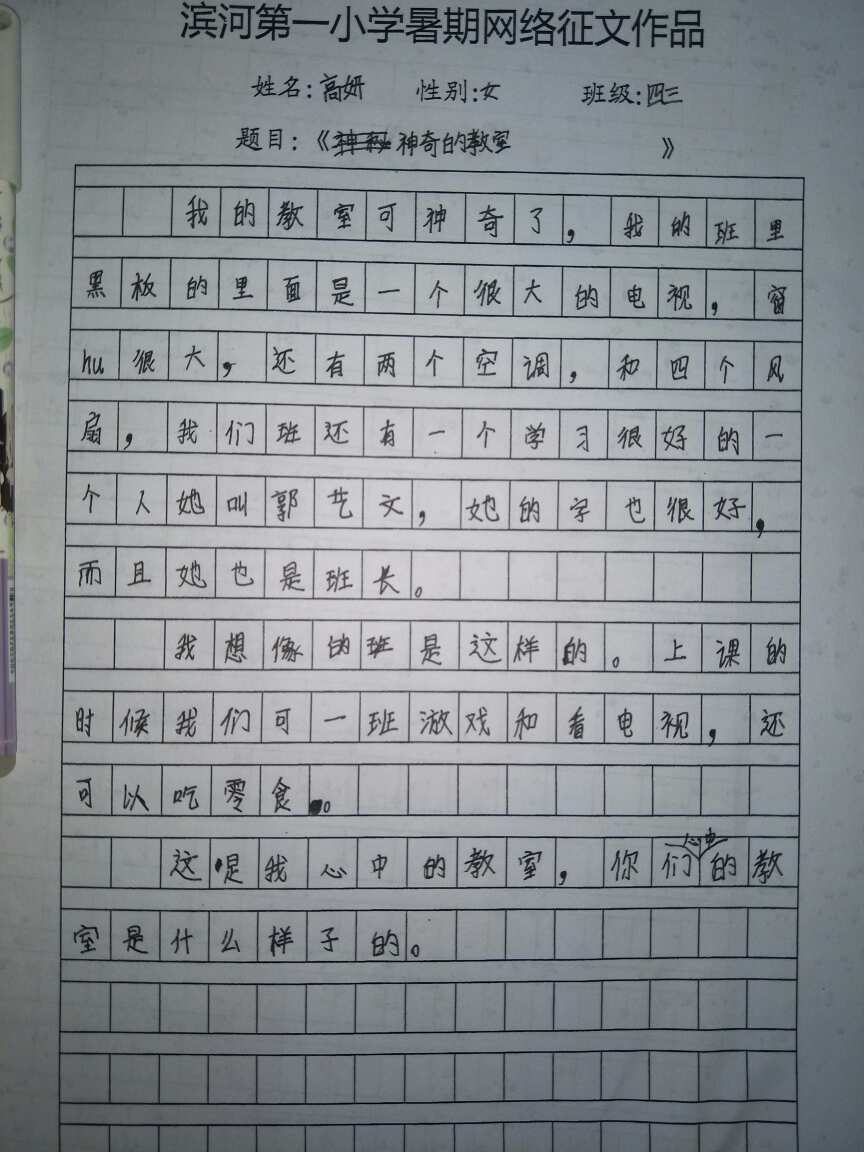 滨河第一小学暑期网络征文作品
姓名:高妍 性别:女 班级:四三
题目:《神奇的教室》
我的教室可神奇了,我的班里
黑板的里面是一个很大的电视,窗
hu很大,还有两个空调,和四个风
扇,我们班还有一个学习很好的一
个人她叫郭艺文,她的字也很好,
而且她也是班长。
我想像的班是这样的。上课的
时候我们可一班游戏和看电视,还
可以吃零食。
这是我心中的教室,你们心中的教
室是什么样子的。